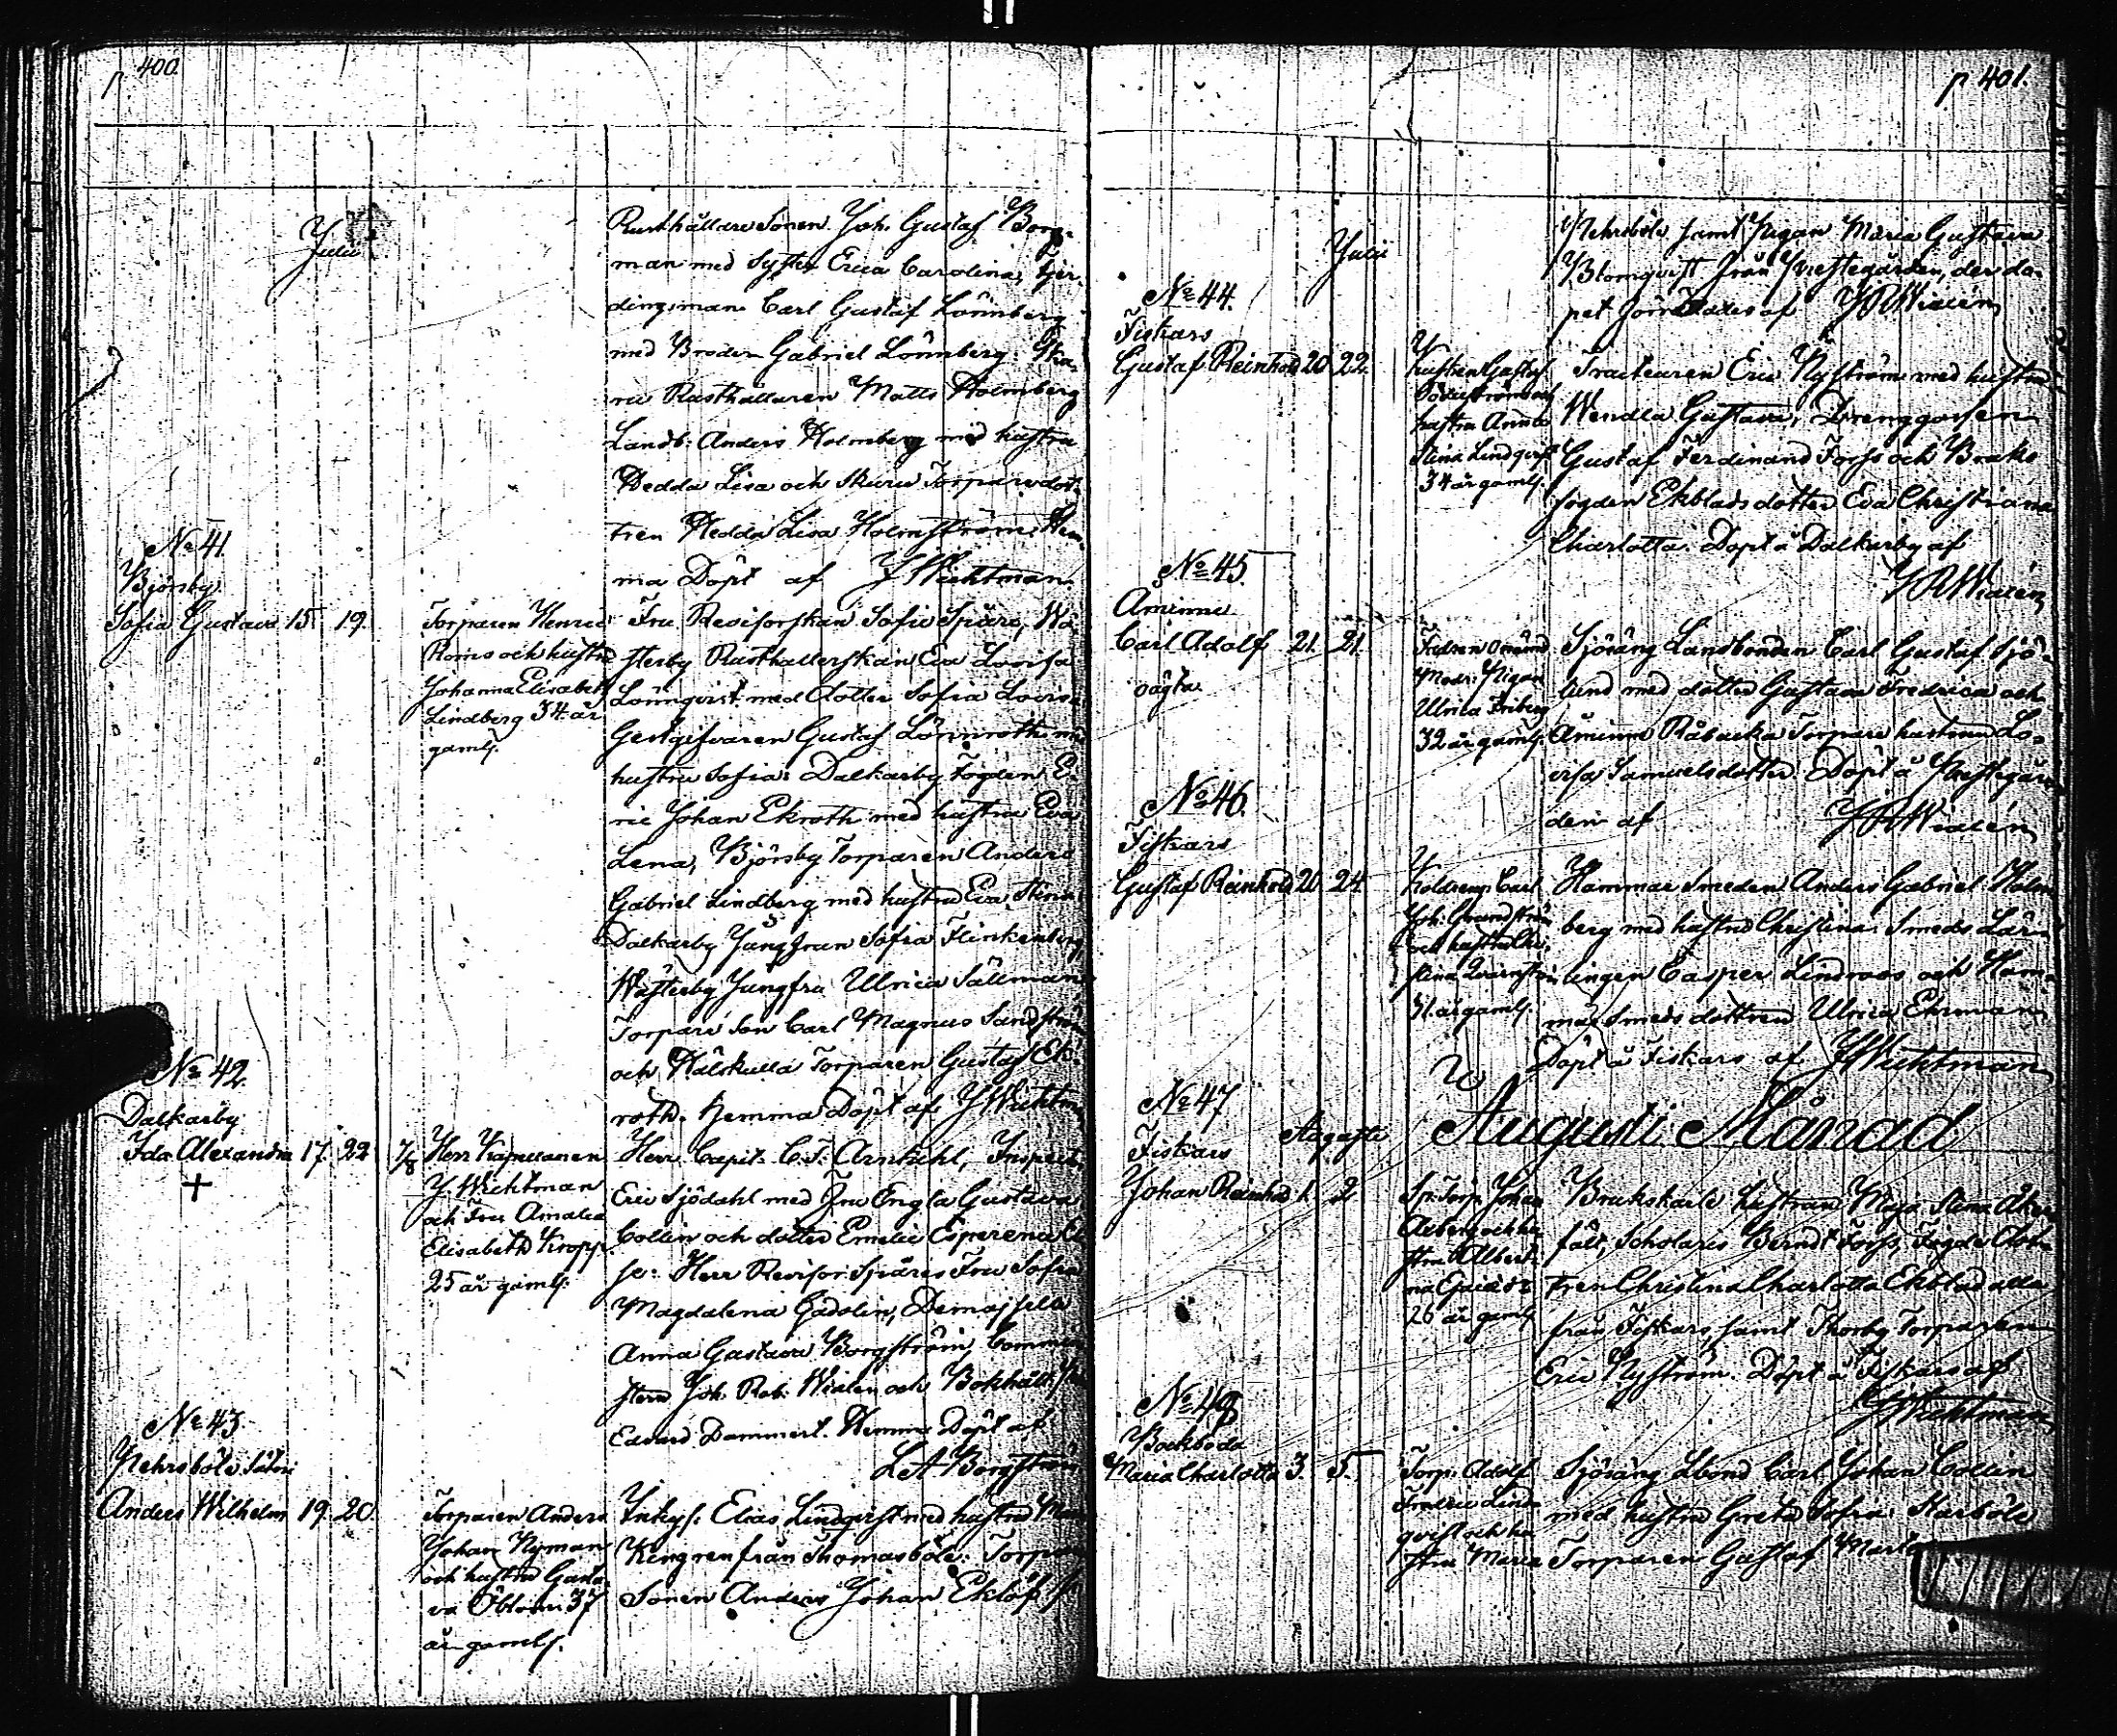 p 400.
Julii
Rusthållare Sonen Joh. Gustaf Borg-
man med Syster Erica Carolina, Fjer-
dingsman Carl Gustaf Lönnberg
med Broder Gabriel Lönnberg:
Rusthållaren Matts Holmberg
Landb: Anders Holmberg med hustru
Hedda Lisa och Skuru Torparedot-
tren Hedda Lisa Holmström. Hem-
ma Döpt af J Wichtman.
No 41.
Björsby
Sofia Gustava 15 19.
Torparen Henric
och hustru
Johanna Elisabet
Lindberg 34 år
gaml.
Fru Revisorskan Sofie Spåre, Wä-
sterby Rusthallerskan Eva Lovisa
Lönnqvist med dotter Sofia Lovisa
Gestgifvaren Gustaf Lönnroth med
hustru Sofia: Dalkarby Fogden E-
ric Johan Ekroth med hustru Eva
Lena, Björsby Torparen Anders
Gabriel Lindberg med hustru Eva Stina:
Dalkarby Jungfrun Sofia Flinkenberg,
Wästerby Jungfru Ulrica Säliman
Torpare Son Carl Magnus Sandström
och Hålskulla Torparen Gustaf Ek-
roth. hemma Döpt af J Wichtman
No 42.
Dalkarby
Ida Alexandra 17. 22 7/8
+
Herr Kapellanen
J. Wichtman
och Fru Amalia
Elisabeth Kropp
25 år gaml.
Herr Capit. C. F. Arnkihl, Inspect.
Eric Sjödahl med Fru Engla Gustava
Collin och dotter Emelie Esperence El
se: Herr Revisor Spåres Fru Sofia
Magdalena Gadolin, Demoiselle
Anna Gustava Borgström, Commi-
stern Joh. Rob. Widen och Bokhåll.
Edvard Dammert. Hemma Döpt af
L A Borgström
No 43.
Nehrsböle Säteri
Anders Wilhelm 19. 20.
Torparen Anders
Johan Nyman
och hustru Gusta-
va Öblom 37
år gaml.
Inhys: Elias Lindqvist med hustru Maria
Kengren från Thomasböle: Torpare
Sonen Anders Johan Eklöf
p 401.
Julii
Nehrsböle samt Pigan Maria Gustava
Blomqvist från Prestegården, der do-
pet förrättades af J R Widén
No 44.
Fiskars
Gustaf Reinhold 20 22.
Kusken Gustaf
Söderström och
hustru Anna
Stina Lindqvist
34 år gaml.
Tracteuren Eric Nyström med hustru
Wendla Gustava, Drenggossen
Gustaf Ferdinand Forss och Bruks
fogden Ekblads dotter Eva Christiana
Charlotta. Döpt å Dalkarby af
J R Widén
No 45.
Åminne
Carl Adolf 21. 21.
oägta
Fadren Onämd
Modr: Pigan
Ulrica Friberg
32 år gaml.
Sjösäng Landbonden Carl Gustaf Sjö-
lund med dotter Gustava Fredrica och
Åminne Råbacka Torpare hustrun Lo-
visa Samuelsdotter. Döpt å Prestegår-
den af J R Widén
No 46.
Fiskars
Gustaf Reinhold 20 24.
Koldreng: Carl
Joh: Grundström
och hustru Chri-
stina
31. år gaml.
Hammar Smeden Anders Gabriel Holm
berg med hustru Christina: Smeds Lär-
lingen Casper Lindroos och Ham-
mar Smeds dottren Ulrica Ekman
Döpt å Fiskars af J Wichtman
No 47
Augusti Augusti Månad
Fiskars
Johan Reinhold 1. 2
Sn: Torp: Johan
Åberg och hu
stru Alberti-
na
26 år gaml
Brukskarls hustrun Maja Stina Åker
fält, Scholaris Berndt Forss, Fogde dot-
tren Christina Charlotta Ekblad alla
från Fiskars samt Thorby Torparen
Eric Nyström. Döpt å Fiskars af
J Wichtman
No 48
Bockboda
Maria Charlotta 3. 5.
Torp: Adolf
Fredric Lind-
qvist och hu
stru Maria
Sjösäng Lbond Carl Johan Collin
med hustru Greta Sofia: Starböle
Torparen Gustaf